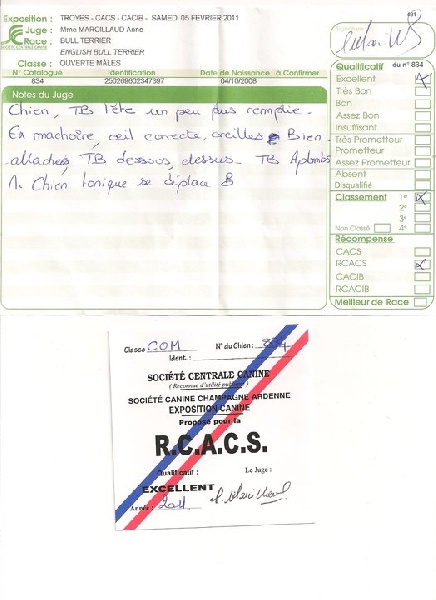 Exposition : TROYES - CACS - CACIB - SAMEDI 05 FEVRIER 2011
Juge : Mme MARCILLAUD Anne
Race : BULL TERRIER
ENGLISH BULL TERRIER
Classe : OUVERTE MÂLES
N° Catalogue Identification Date de Naissance à Confirmer
834 250269602347397 04/10/2008
Notes du Juge
Chien, TB tête un peu plus remplie.
En machoire, oeil correcte, oreilles Bien
attachées TB dessous, dessus. TB Aplombs
Chien tonique se déplace B
Qualificatif du n° 834
Excellent X
Très Bon
Bon
Assez Bon
Insuffisant
Très Prometteur
Prometteur
Assez Prometteur
Absent
Disqualifié
Classement 1° X
2°
3°
Non Classé 4°
Récompense
CACS
RCACS X
CACIB
RCACIB
Meilleur de Race
Classe COM N° du Chien : 834
Ident. :
SOCIÉTÉ CENTRALE CANINE
(Reconnue d'utilité publique)
SOCIÉTÉ CANINE CHAMPAGNE ARDENNE
EXPOSITION CANINE
Proposé pour la
R.C.A.C.S.
Qualificatif : Le Juge :
EXCELLENT
Année : 2011